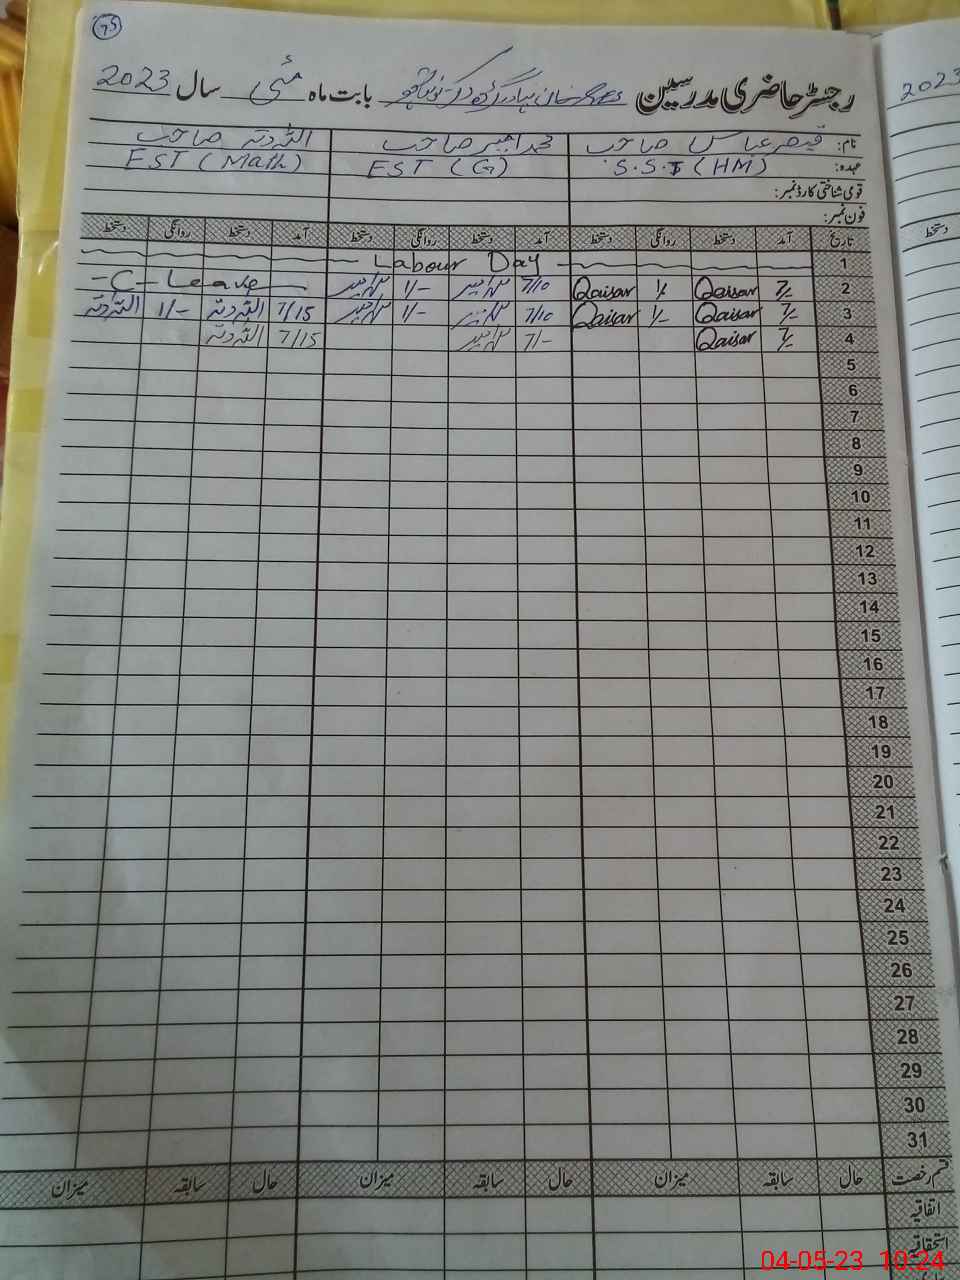 75
رجسٹر حاضری مدرسین بابت ماہ مئی سال 2023
2023
نام: قیصر عباس صاحب محمد صاحب اللہ دتہ صاحب
عہدہ: S.S.T (HM) EST (G) EST (Math)
قومی شناختی کارڈ نمبر:
فون نمبر:
تاریخ آمد دستخط روانگی دستخط آمد دستخط روانگی دستخط آمد دستخط روانگی دستخط
دستخط
1 Labour Day
2 7/- Qaisar 1/- Qaisar 7/10 1/- C-Leave
3 7/- Qaisar 1/- Qaisar 7/10 1/- 7/15 اللہ دتہ 1/- اللہ دتہ
4 7/- Qaisar 7/- 7/15 اللہ دتہ
5
6
7
8
9
10
11
12
13
14
15
16
17
18
19
20
21
22
23
24
25
26
27
28
29
30
31
قسم رخصت حال سابقہ میزان حال سابقہ میزان حال سابقہ میزان
اتفاقیہ
استحقاقیہ
04-05-23 10:24